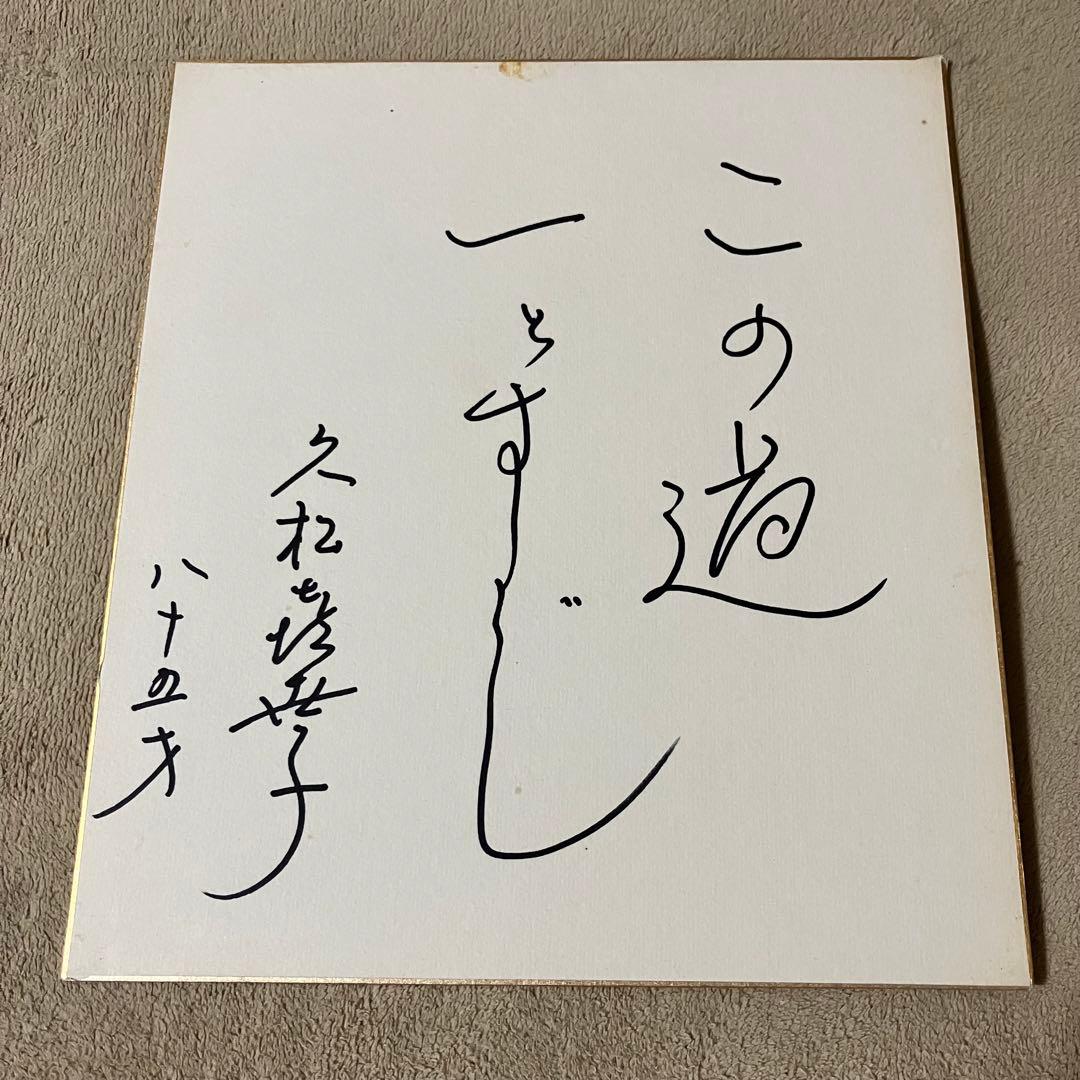 この道
一とすじ
久松喜世子
八十五才